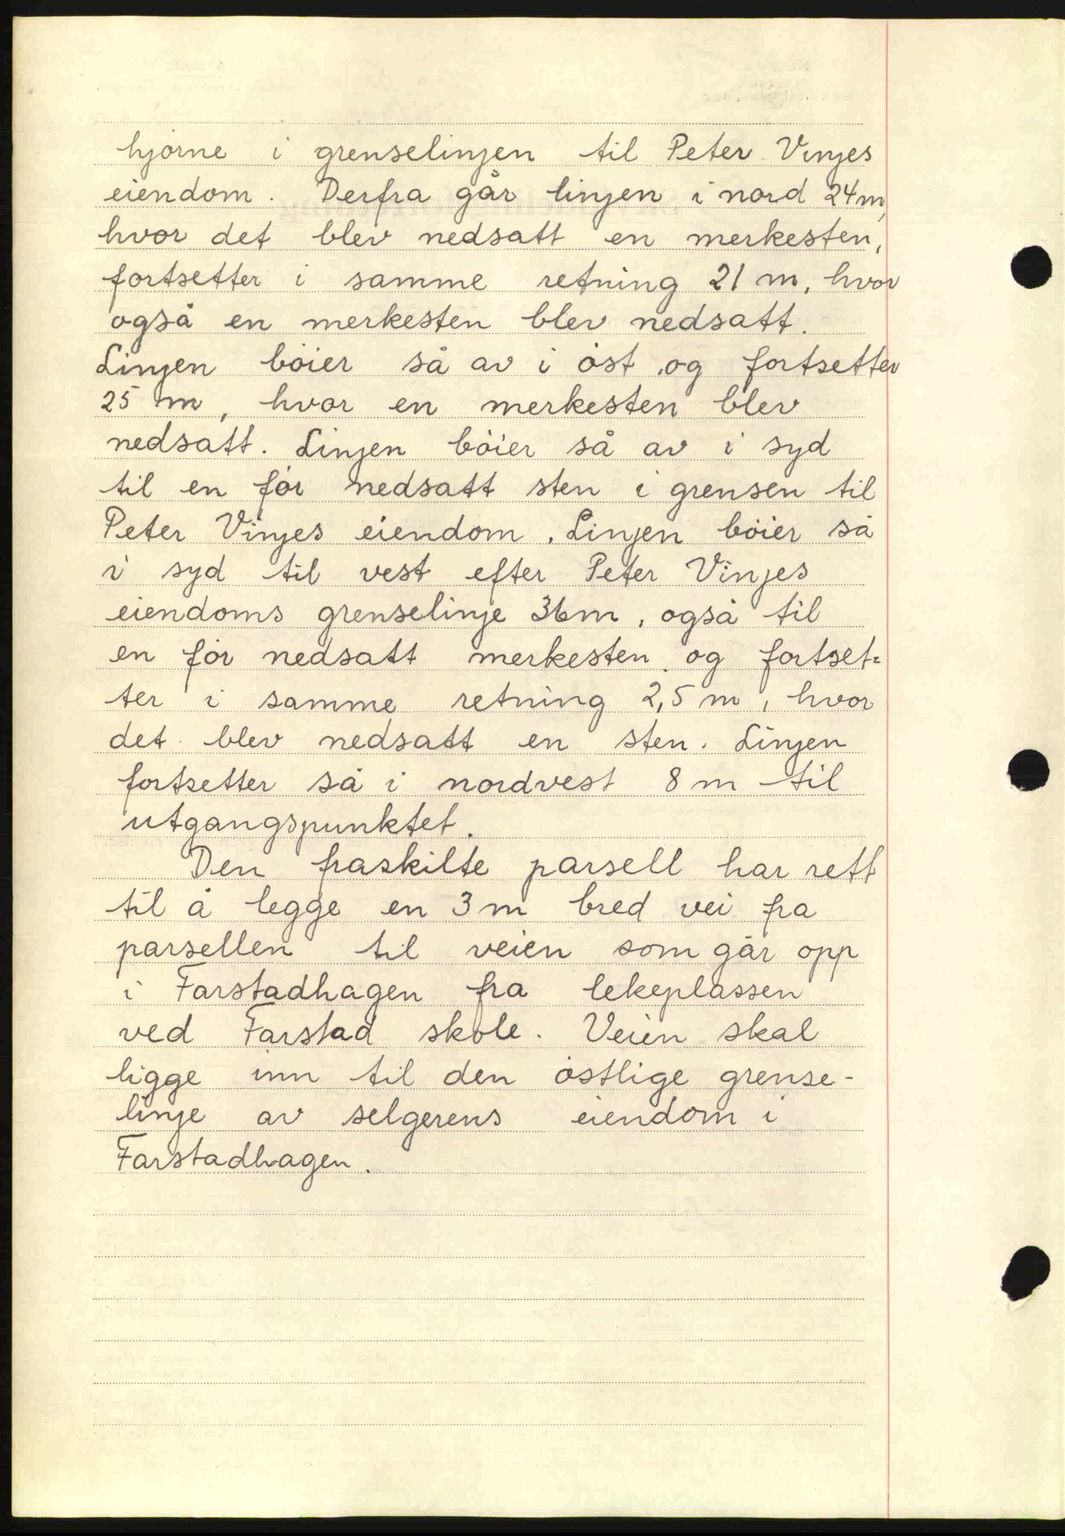 hjørne i grenselinjen til Peter Vinjes
eiendom. Derfra går linjen i nord 24m,
hvor det blev nedsatt en merkesten,
fortsetter i samme retning 21 m, hvor
også en merkesten blev nedsatt.
Linjen bøier så av i øst og fortsetter
25 m, hvor en merkesten blev
nedsatt. Linjen bøier så av i syd
til en før nedsatt sten i grensen til
Peter Vinjes eiendom. Linjen bøier så
i syd til vest efter Peter Vinjes
eiendoms grenselinje 36m, også til
en før nedsatt merkesten og fortset=
ter i samme retning 2,5 m, hvor
det blev nedsatt en sten. Linjen
fortsetter så i nordvest 8 m til
utgangspunktet.
Den fraskilte parsell har rett
til å legge en 3 m bred vei fra
parsellen til veien som går opp
i Farstadhagen fra lekeplassen
ved Farstad skole. Veien skal
ligge inn til den østlige grense-
linje av selgerens eiendom i
Farstadhagen.